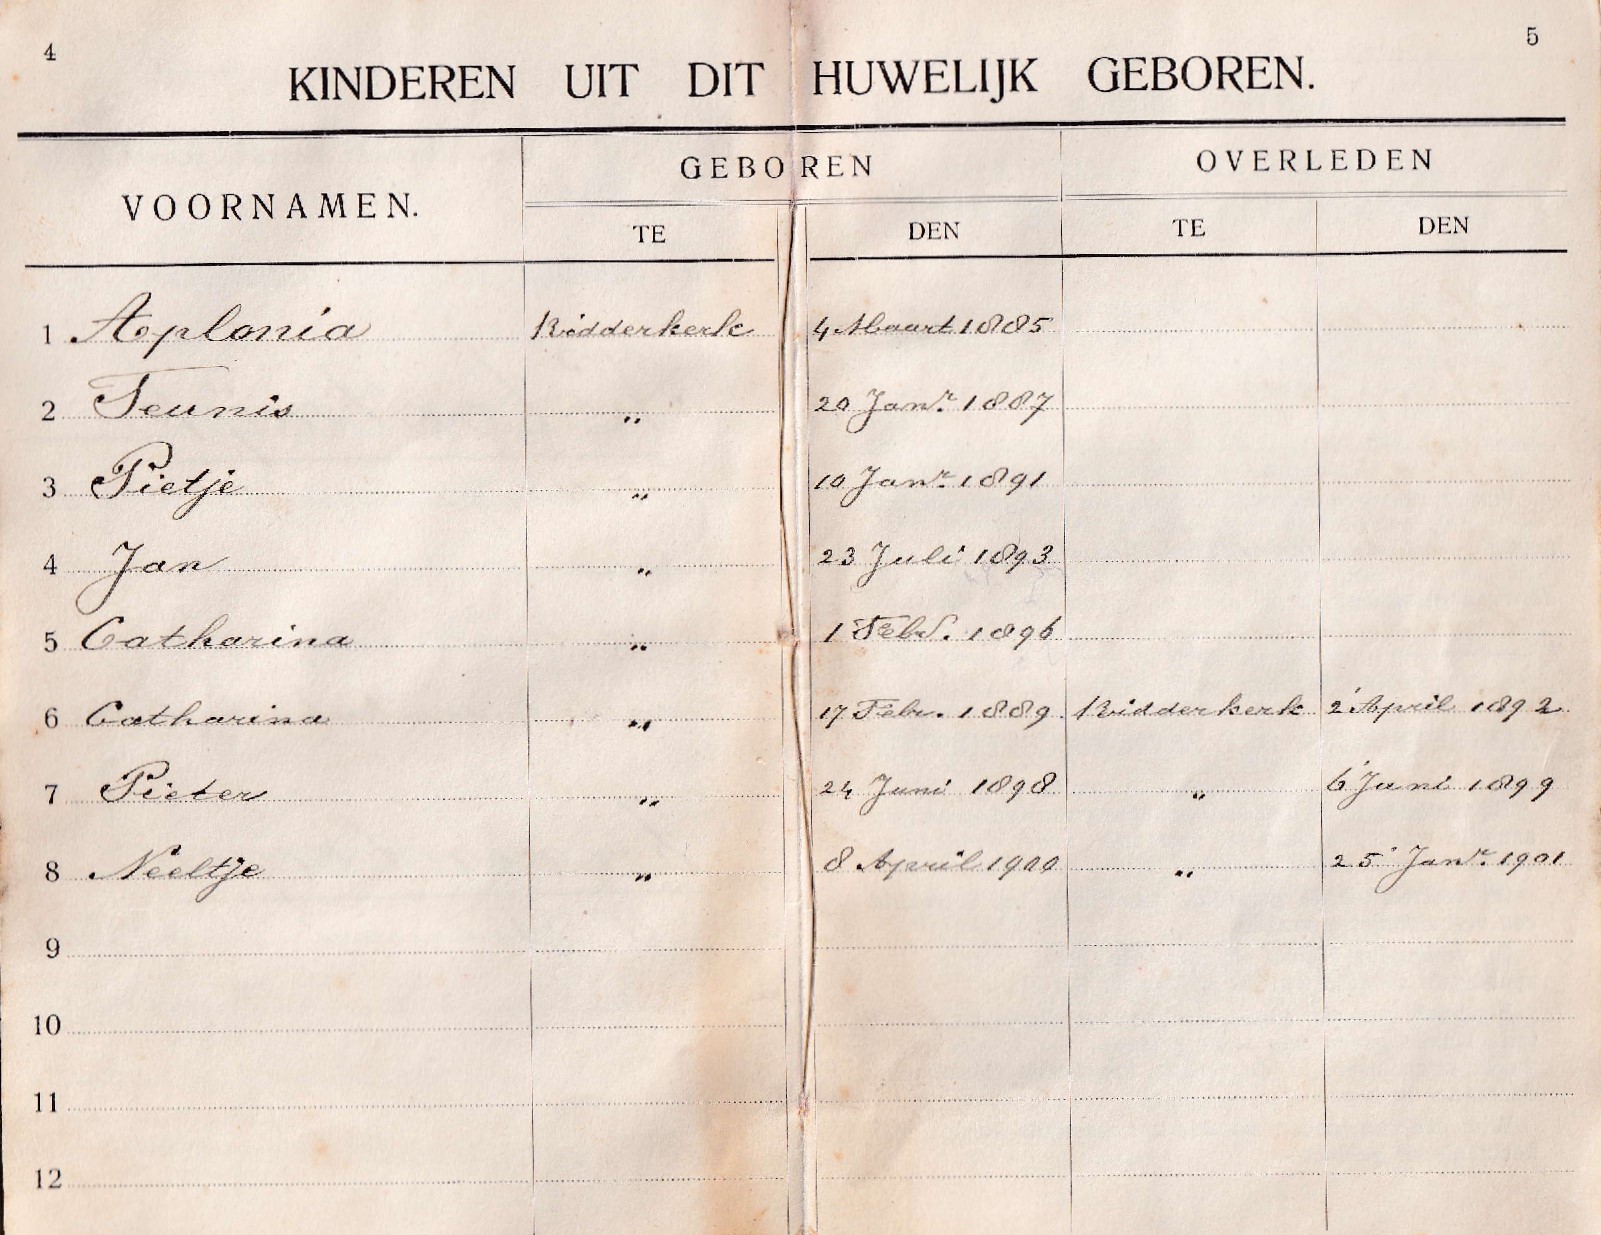 4 5
KINDEREN UIT DIT HUWELIJK GEBOREN.
VOORNAMEN. GEBOREN OVERLEDEN
TE DEN TE DEN
1 Aplonia Ridderkerk 4 Maart 1885
2 Teunis " 20 Janr. 1887
3 Pietje " 10 Janr. 1891
4 Jan " 23 Juli 1893
5 Catharina " 1 Febr. 1896
6 Catharina " 17 Febr. 1889 Ridderkerk 2 April 1892
7 Pieter " 24 Juni 1898 " 6 Juni 1899
8 Neeltje " 8 April 1900 " 25 Janr. 1901
9
10
11
12